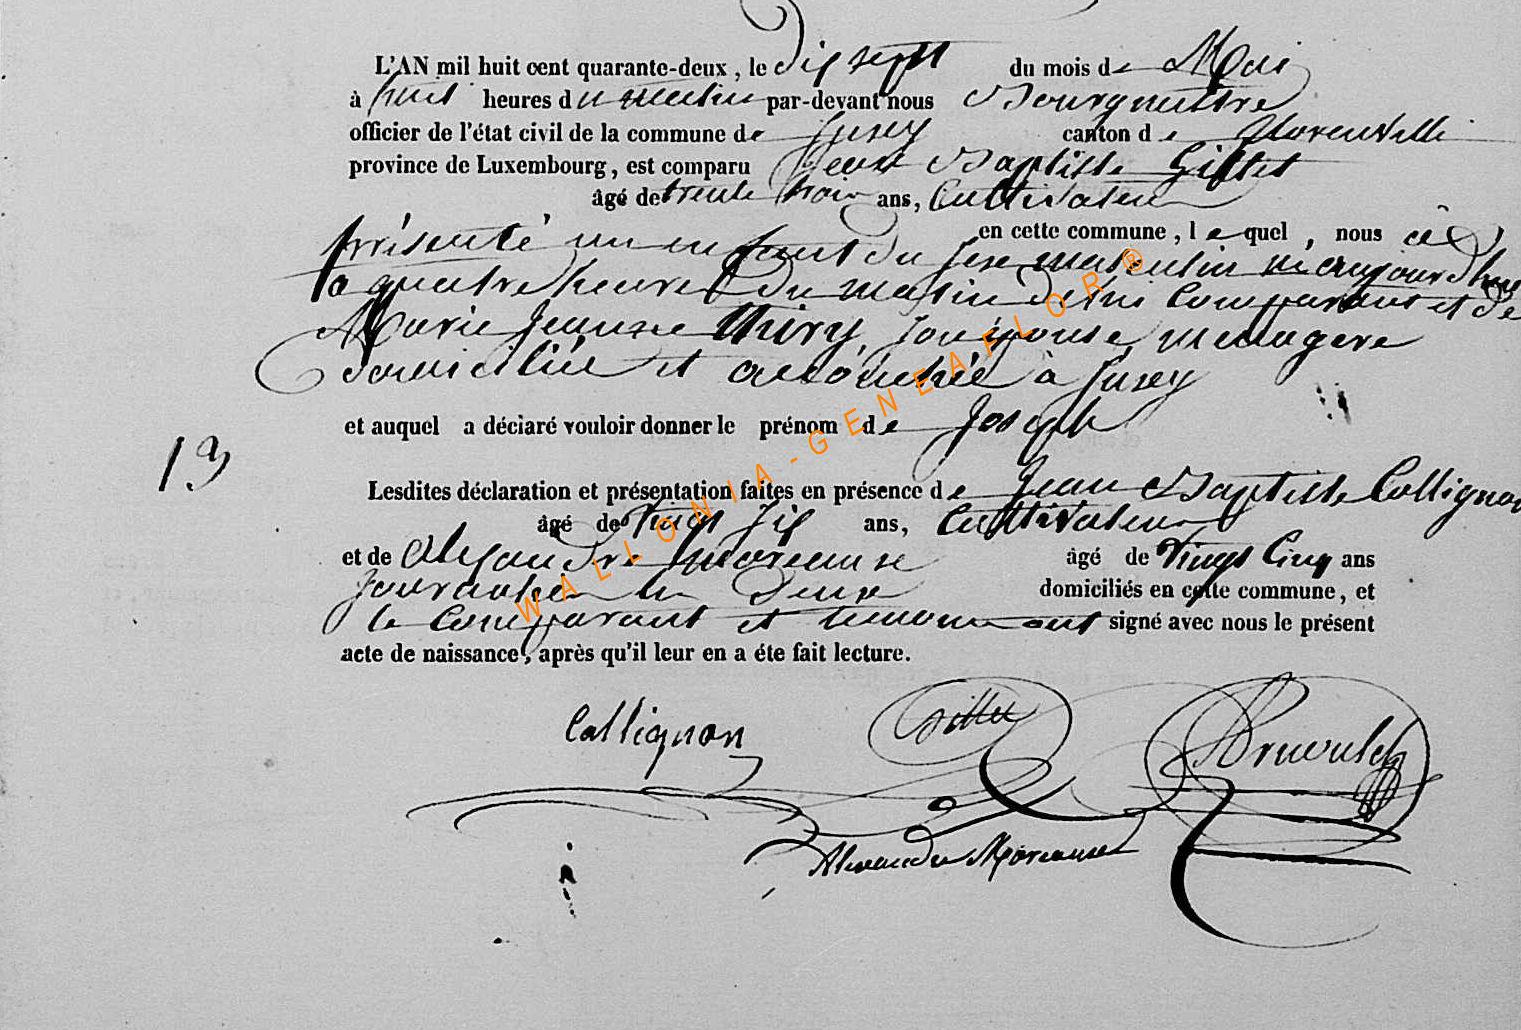 L'AN mil huit cent quarante-deux, le dix sept du mois de Mai
à huit heures du matin par-devant nous Bourgmestre
officier de l'état civil de la commune de Jusey canton de Florenville
province de Luxembourg, est comparu Jean Baptiste Gillet
âgé de trente trois ans, Cultivateur
en cette commune, lequel, nous a
présenté un enfant du sexe masculin né aujourd'hui
à quatre heures du matin de lui Comparant et de
Marie Jeanne Thiry, son épouse, menagere
domiciliée et accouchée à Jusey
et auquel a déclaré vouloir donner le prénom de Joseph
13
Lesdites déclaration et présentation faites en présence de Jean Baptiste Collignon
âgé de vingt six ans, Cultivateur
et de Alexandre Moreause âgé de vingt Cinq ans
Journalier les Deux domiciliés en cette commune, et
le Comparant et temoins ont signé avec nous le présent
acte de naissance, après qu'il leur en a éte fait lecture.
Collignon Gillet
Alexandre Moreause
WALLONIA-GENEAFLOR®